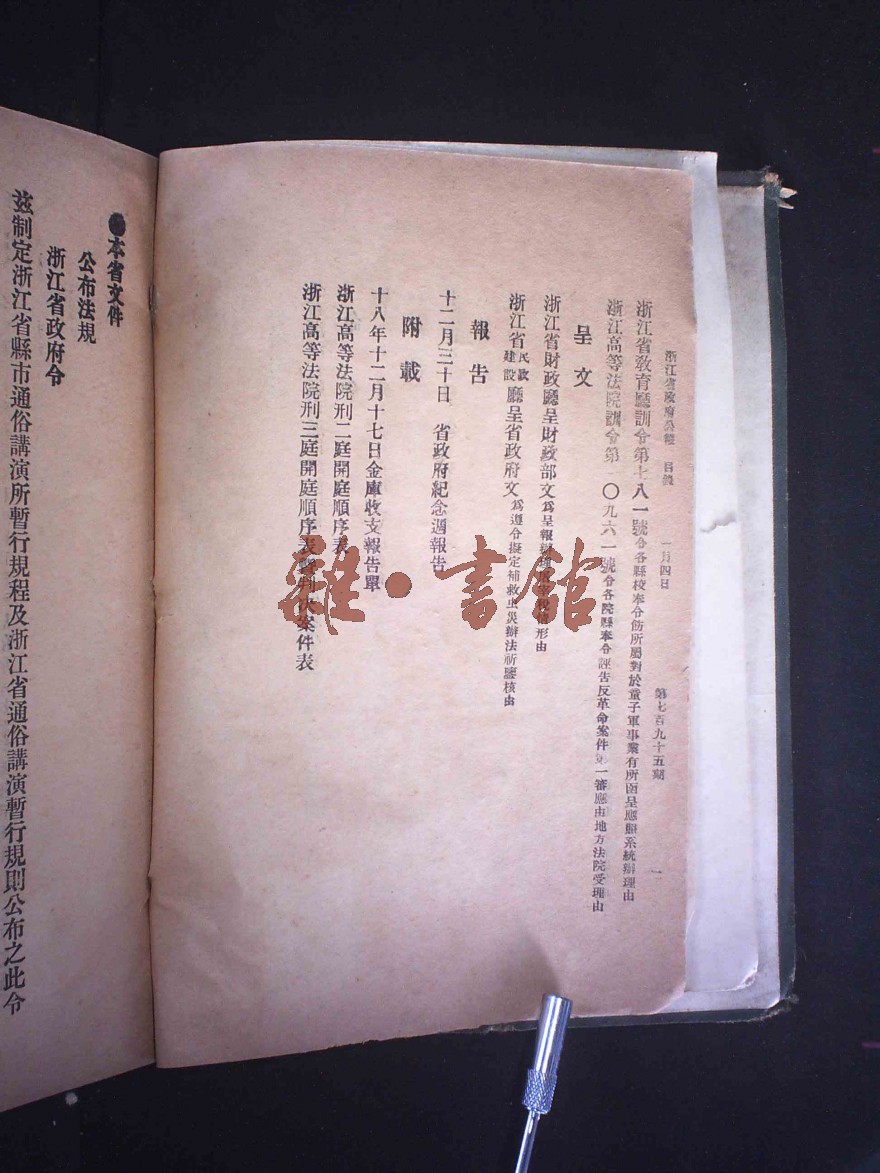 浙江省政府公報 目錄 一月四日 第七百九十五期 一
浙江省教育廳訓令第七八一號令各縣校奉令飭所屬對於童子軍事業有所函呈應照系統辦理由
浙江高等法院訓令第一〇九六一號令各院縣奉令誣告反革命案件第一審應由地方法院受理由
呈文
浙江省財政廳呈財政部文為呈報辦理 情形由
浙江省民政建設廳呈省政府文為遵令擬定補救虫災辦法祈鑒核由
報告
十二月三十日 省政府紀念週報告
附載
十八年十二月十七日金庫收支報告單
浙江高等法院刑二庭開庭順序表
浙江高等法院刑三庭開庭順序表暨判決案件表
●本省文件
公布法規
浙江省政府令
茲制定浙江省縣市通俗講演所暫行規程及浙江省通俗講演暫行規則公布之此令
雜·書館